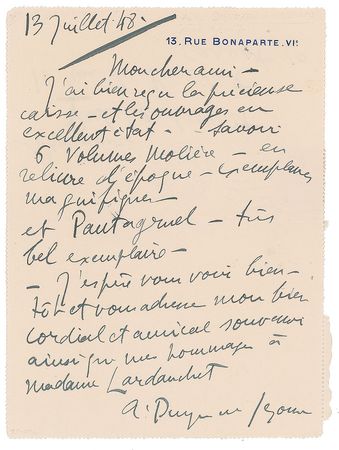 13 Juillet 48.
13, RUE BONAPARTE. VIᵉ
Mon cher ami -
J'ai bien reçu la précieuse
caisse - et les ouvrages en
excellent état - savoir
6 volumes Molière - en
reliure d'époque - exemplaires
magnifiques
et Pantagruel - très
bel exemplaire -
- J'espère vous voir bien-
tôt et vous adresse mon bien
cordial et amical souvenir
ainsi que mes hommages à
madame Lardanchet
A. Dunoyer de Segonzac